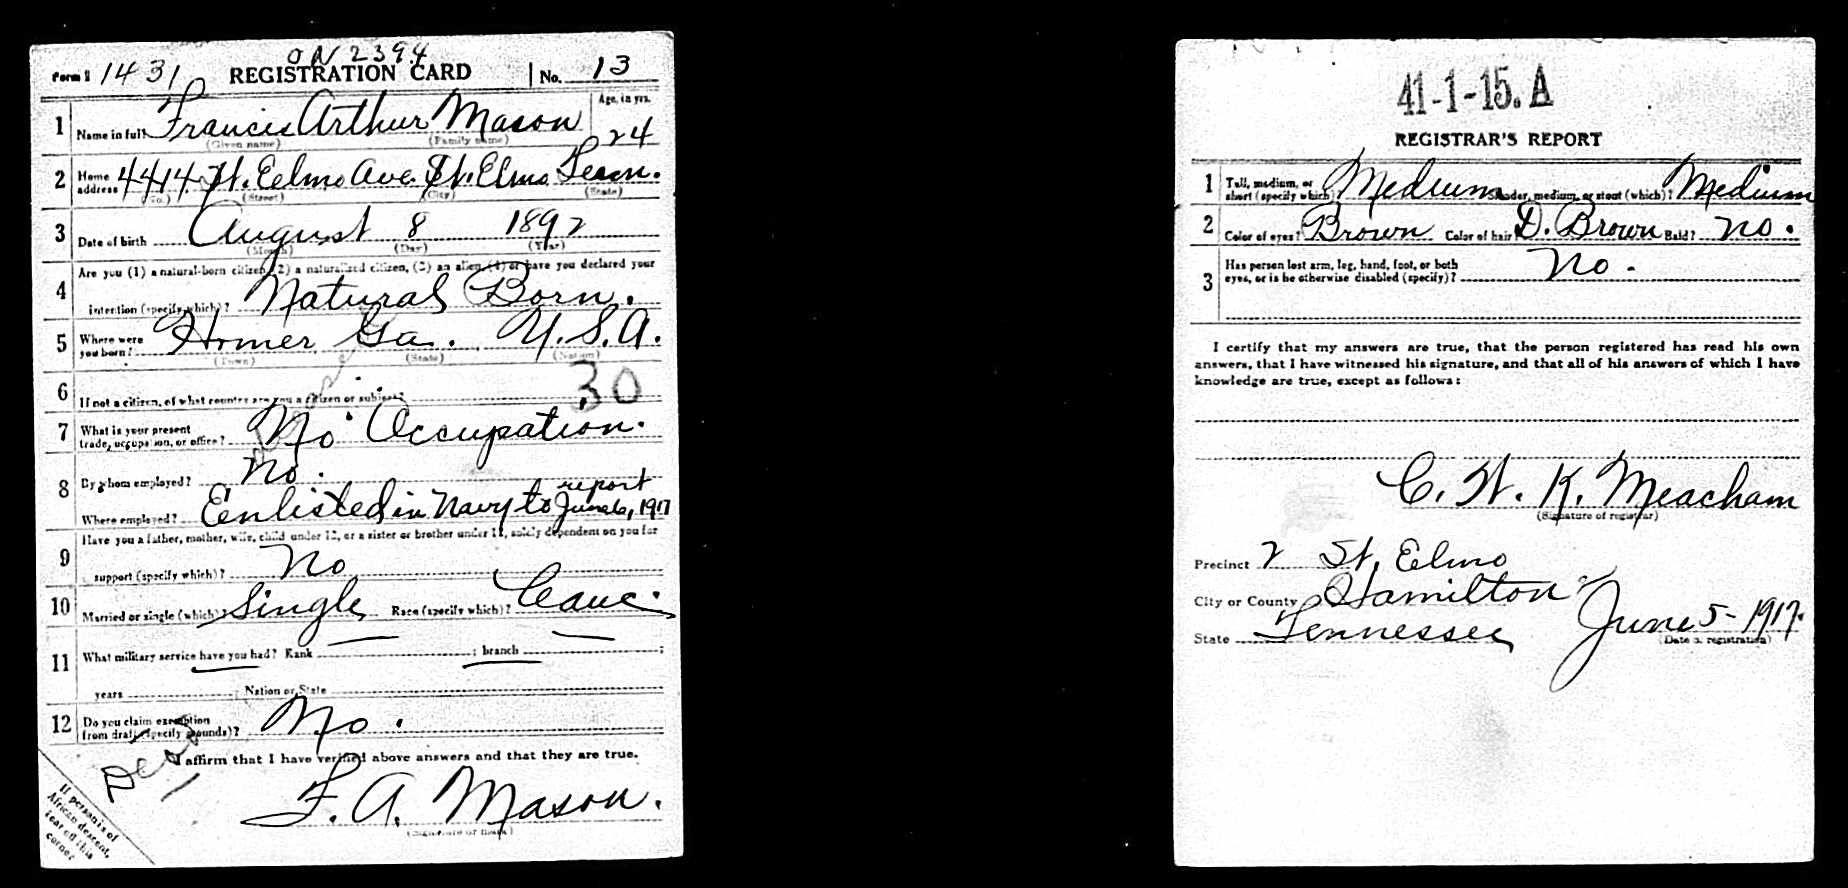 ON 2394
Form 1 1431 REGISTRATION CARD No. 13
1 Name in full Francis Arthur Mason Age, in yrs. 24
(Given name) (Family name)
2 Home address 4414 St. Eelmo Ave. St. Elmo Tenn.
(No.) (Street) (City) (State)
3 Date of birth August 8 1892
(Month) (Day) (Year)
4 Are you (1) a natural-born citizen, (2) a naturalized citizen, (3) an alien, (4) or have you declared your
intention (specify which)? Natural Born.
5 Where were you born? Homer Ga. U.S.A.
(Town) (State) (Nation)
6 If not a citizen, of what country are you a citizen or subject? 30
7 What is your present trade, occupation, or office? No Occupation.
8 By whom employed? No.
Where employed? Enlisted in Navy to report June 6, 1917
9 Have you a father, mother, wife, child under 12, or a sister or brother under 12, solely dependent on you for
support (specify which)? No
10 Married or single (which)? Single Race (specify which)? Cauc.
11 What military service have you had? Rank ; branch ;
years ; Nation or State
12 Do you claim exemption from draft (specify grounds)? No.
I affirm that I have verified above answers and that they are true.
F. A. Mason.
(Signature or mark)
If person is of
African descent,
tear off this
corner
41-1-15. A
REGISTRAR'S REPORT
1 Tall, medium, or short (specify which)? Medium Slender, medium, or stout (which)? Medium
2 Color of eyes? Brown Color of hair? D. Brown Bald? No.
3 Has person lost arm, leg, hand, foot, or both
eyes, or is he otherwise disabled (specify)? No.
I certify that my answers are true, that the person registered has read his own
answers, that I have witnessed his signature, and that all of his answers of which I have
knowledge are true, except as follows:
C. W. K. Meacham
(Signature of registrar)
Precinct 2 St. Elmo
City or County Hamilton
State Tennessee June 5-1917.
(Date of registration)